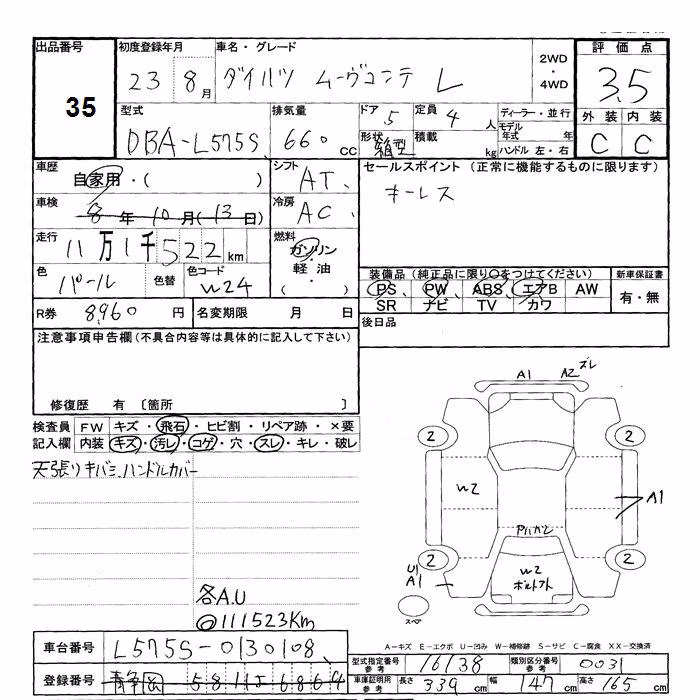 出品番号
35
初度登録年月
23 8月
車名・グレード
ダイハツ ムーヴコンテ L
2WD
・
4WD
評価点
3.5
外装 内装
C C
型式
DBA-L575S
排気量
660cc
ドア
5
定員
4人
形状
箱型
積載
kg
ディーラー・並行
モデル年式 年
ハンドル 左・右
車歴
自家用・( )
シフト
AT
セールスポイント (正常に機能するものに限ります)
キーレス
車検
8年10月(13日)
冷房
AC
走行
11万1千522km
燃料
ガソリン
・
軽油
( )
色
パール
色替
色コード
W24
装備品(純正品に限り○をつけてください)
PS PW ABS エアB AW
SR ナビ TV カワ
新車保証書
有・無
R券 8,960円
名変期限 月 日
後日品
注意事項申告欄(不具合内容等は具体的に記入して下さい)
修復歴 有 〔箇所 〕
検査員記入欄
FW キズ・飛石・ヒビ割・リペア跡・×要
内装 キズ・汚レ・コゲ・穴・スレ・キレ・破レ
天張りキバミ、ハンドルカバー
各A.U
◎111523Km
A1 A2 ズレ
2 2
W2
A1
Pハガシ
2 2
U1
A1
W2
ボルト
スペア
A-キズ E-エクボ U-凹み W-補修跡 S-サビ C-腐食 XX-交換済
車台番号 L575S-0130108
型式指定番号 参考 16138
類別区分番号 参考 0031
登録番号 静岡 581
車庫証明用 参考 長さ 339cm 幅 147cm 高さ 165cm